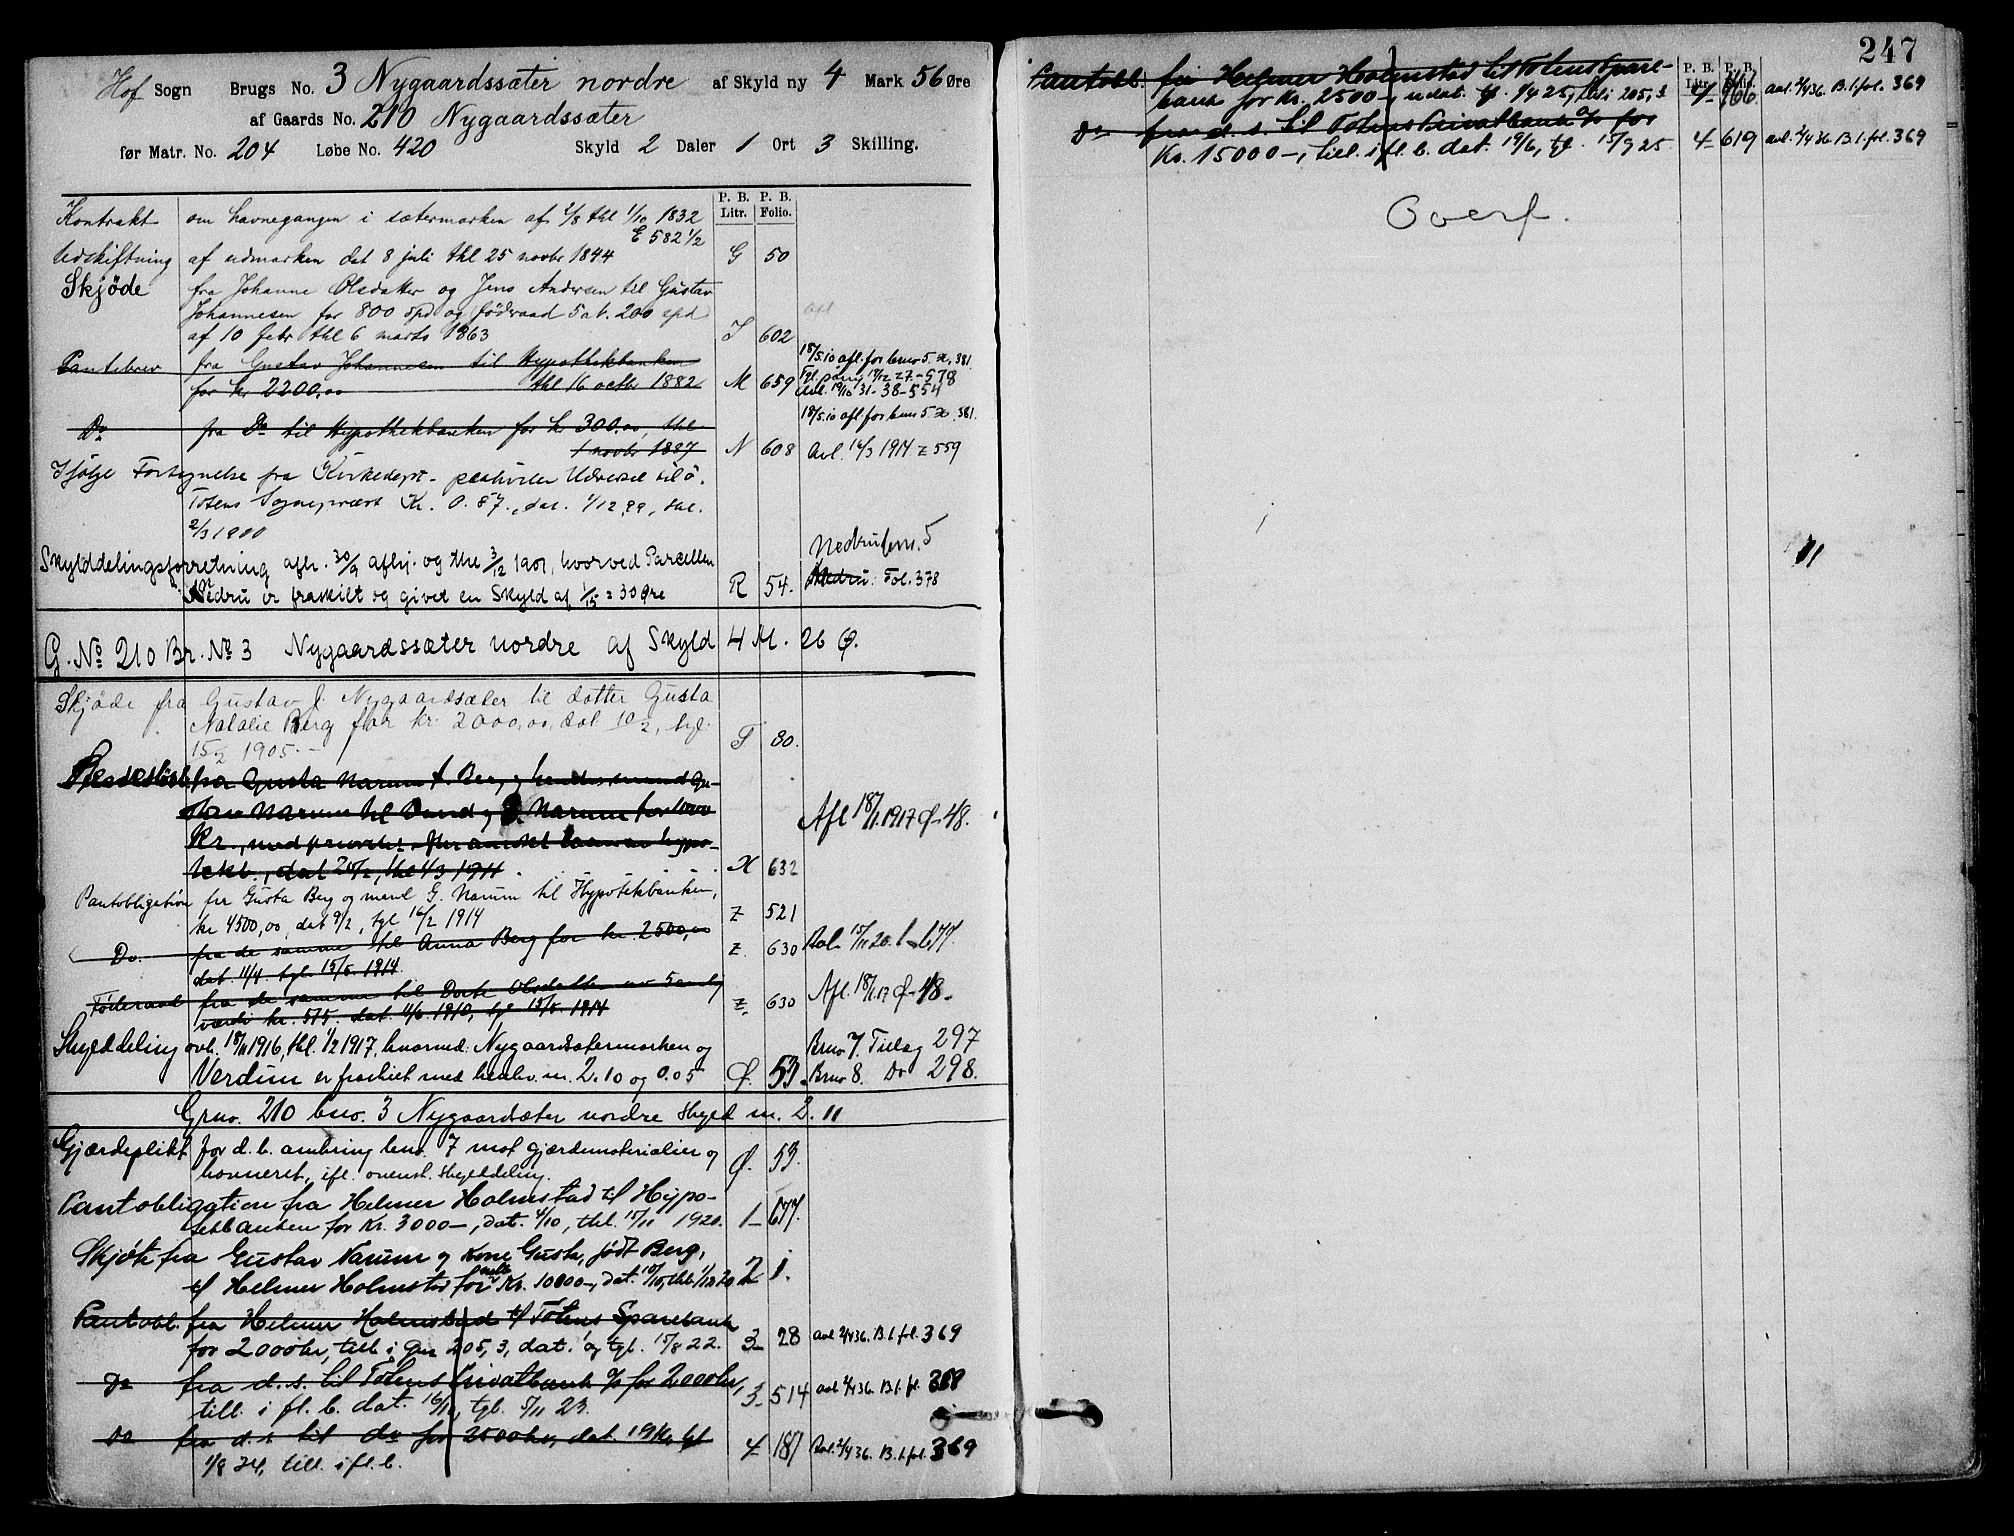 Hof Sogn Brugs No. 3 Nygaardssæter nordre af Skyld ny 4 Mark 56 Øre
af Gaards No. 210 Nygaardssæter
før Matr. No. 204 Løbe No. 420 Skyld 2 Daler 1 Ort 3 Skilling.
P. B. Litr. P. B. Folio.
Kontrakt om havnegangen i sætermarken af 2/8 thl 1/10 1832
E 582 1/2
Udskiftning af udmarken dat 8 juli thl 25 novbr 1844 G 50
Skjöde fra Johanne Olsdatter og Jens Andersen til Gustav
Johannesen for 800 spd og födraad 5 a. 200 spd
af 10 febr thl 6 marts 1863 I 602
Pantebrev fra Gustav Johannesen til Hypothekbanken
for kr 2200,00 thl 16 octbr 1882 M 659
18/5.10 afl. for bruv 5. x. 381.
Avl. 19/10 31-38-554
18/5.10 afl. for bruv 5 x. 381.
Do fra Do til Hypothekbanken for kr 300.00, thl
1 novbr 1887 N 608 Avl. 14/3 1914 Z 559
Ifølge Fortegnelse fra Kirkedept.
Totens Sognepræst Kr. 0.87., dat. 1/12 99, thl.
2/3 1900
Skylddelingsforretning afh. 30/9 aflj. og thl 3/12 1901, hvorved Parcellen
Nedru er fraskilt og givet en Skyld af 1/15 = 30 Øre R 54.
Nedru bruv. 5
Nedru: Fol. 378
G. No 210 Br. No 3 Nygaardssæter nordre af Skyld 4 M. 26 Ø.
Skjöde fra Gustav J. Nygaardsæter til datter Gusta
Natalie Berg for kr. 2000,00, dat 10/2, tgl.
15/2 1905.- T 80.
fra Gusta Narum f. Berg og hendes mand Gu-
stav Narum til Narum for 1000
Kr., med prioritet efter laan av hypo-
tekb., dat 25/2, thl 4/3 1911 X 632
Afl 18/1.1917 Ø-48.
Pantobligation fra Gusta Berg og mand G. Narum til Hypotekbanken,
kr 4500,00, dat 9/2, tgl 16/2 1914 Z 521
Do. fra de samme til Anna Berg for kr 2500,00
dat. 14/4. tgl. 15/5. 1914. Z. 630 Avl. 15/11 20. 1-677.
Føderaad fra de samme til Dorte Olsdatter
værdi kr. 515. dat. 4/6. 1910, tgl 15/5. 1914 Z. 630 Afl. 18/1.17 Ø-48-
Skylddeling avh. 18/11 1916, thl. 1/2 1917, hvorved: Nygaardsætermarken og
Verdun er fraskilt med henhv. m. 2.10 og 0.05 Ø. 53.
Bruv 7. Tillæg 297
Bruv 8. Do 298.
Gruv. 210 bruv. 3 Nygaardsæter nordre Skyld m. 2.11
Gjærdeplikt for d. b. omkring bruv. 7 mot gjærdematerialier og
havneret, ifl. ovenst. Skylddeling. Ø. 53.
Pantobligation fra Helmer Holmstad til Hypo-
tekbanken for Kr. 3000-, dat. 4/10, thl. 15/11 1920. 1- 677.
Skjöte fra Gustav Narum og kone Gusta, født Berg,
til Helmer Holmstad for Kr. 10000-, dat. 10/10, thl. 1/12 20 2 1.
Pantobl. fra Helmer Holmstad til Totens Sparebank
for 2000 kr, till. i gnr 205, 3, dat. og tgl. 15/8 22. 3- 28 avl 2/4 36. B. 1. fol. 369
Do fra d. s. til Totens Privatbank % for 2000 kr,
till. i fl. b. dat. 16/10, tgl. 5/11 23. 3- 514 avl 2/4 36. B. 1. fl. 369
Do fra d. s til do for 2500 kr, dat.
1/8 24, till. i fl. b. 4 187 Avl. 2/4 36. B. 1. fol. 369
247
P. B. Litr. P. B. Folio.
Pantobl. fra Helmer Holmstad til Totens Spare-
bank for Kr. 2500-, udat. tgl. 1/4 25, till i 205, 3 4- 166 avl. 2/4 36. B. 1. fol. 369
Do fra d. s. til Totens Privatbank % for
Kr. 15000-, till. i fl. b. dat. 19/6, tgl. 15/7 25 4- 619 avl. 2/4 36. B. 1. fl. 369
Overf.